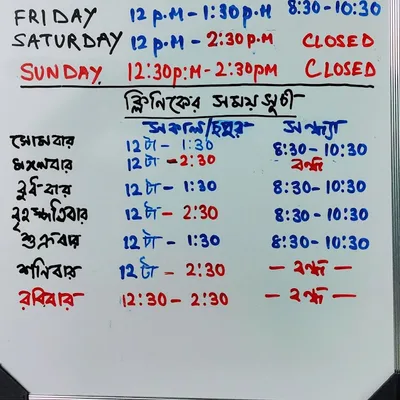 FRIDAY 12 P.M - 1:30P.M 8:30 - 10:30
SATURDAY 12 P.M - 2:30 P.M CLOSED
SUNDAY 12:30P:M - 2:30PM CLOSED
ক্লিনিকের সময় সূচী
সকাল/দুপুর সন্ধ্যা
সোমবার 12 টা - 1:30 8:30 - 10:30
মঙ্গলবার 12 টা - 2:30 বন্ধ
বুধবার 12 টা - 1:30 8:30 - 10:30
বৃহস্পতিবার 12 টা - 2:30 8:30 - 10:30
শুক্রবার 12 টা - 1:30 8:30 - 10:30
শনিবার 12 টা - 2:30 - বন্ধ -
রবিবার 12:30 - 2:30 - বন্ধ -